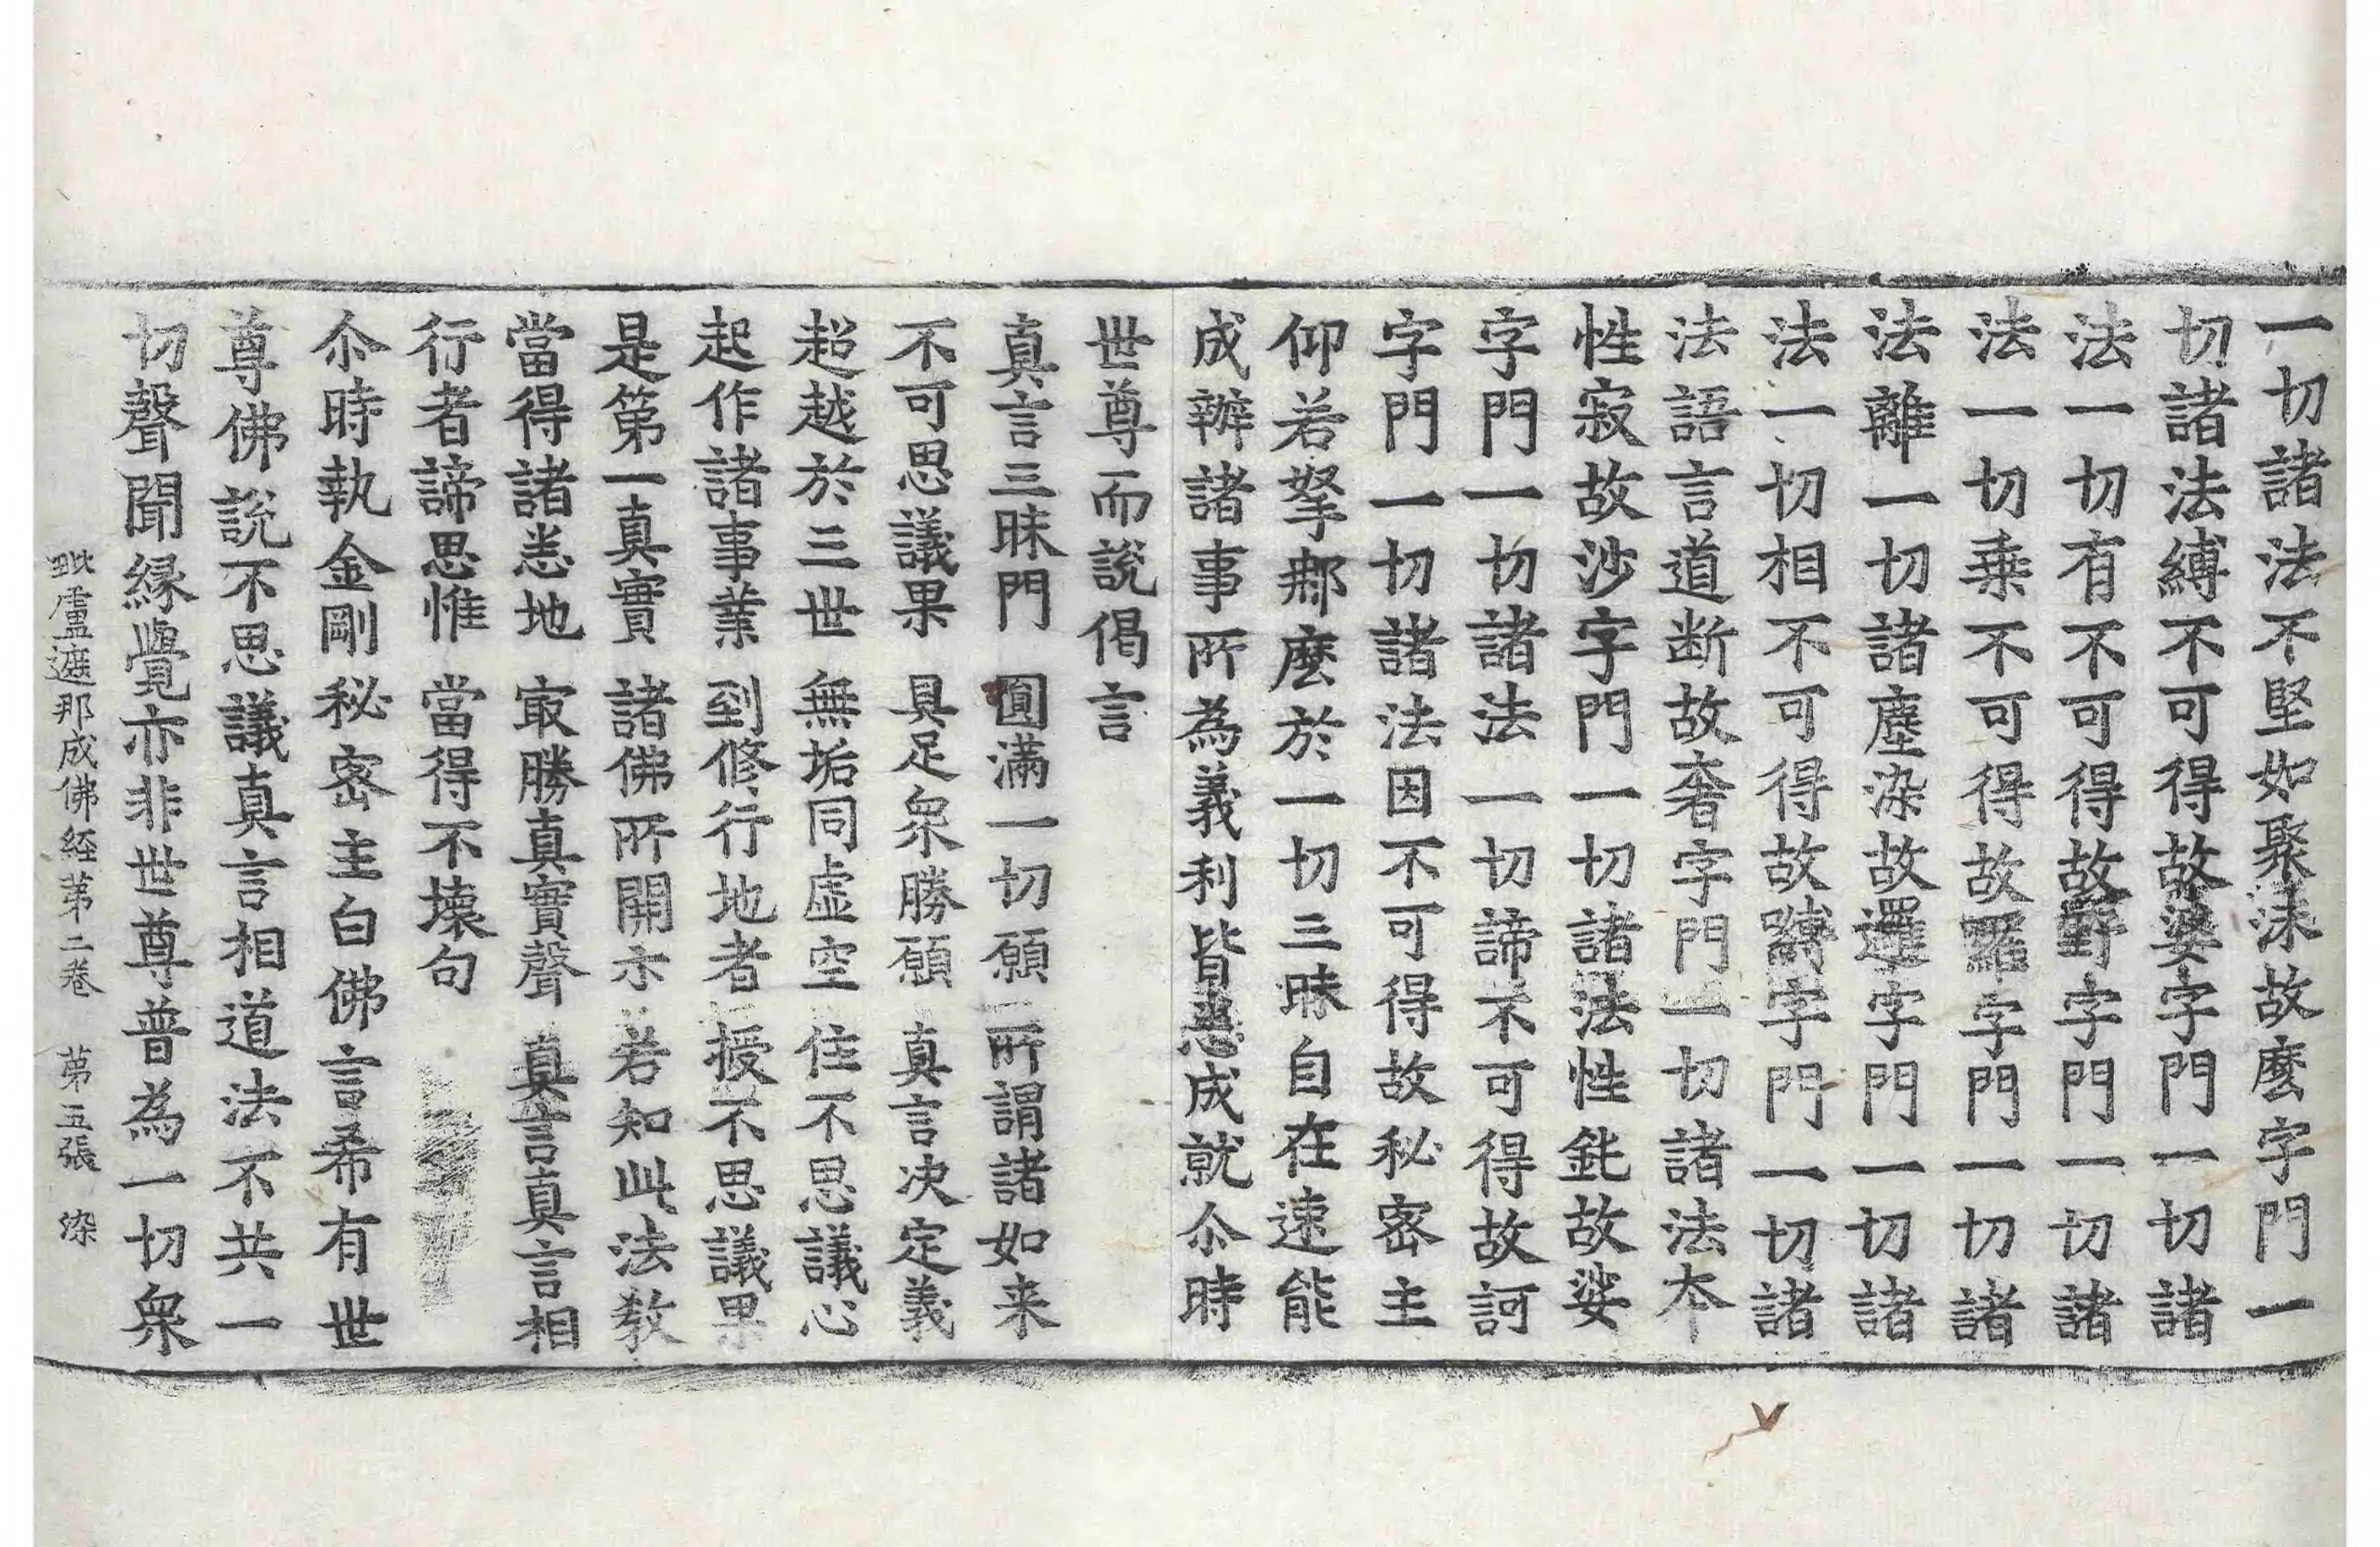 一切諸法不堅如聚沫故麼字門一
切諸法縛不可得故婆字門一切諸
法一切有不可得故野字門一切諸
法一切乗不可得故羅字門一切諸
法離一切諸塵染故邏字門一切諸
法一切相不可得故嚩字門一切諸
法語言道断故奢字門一切諸法夲
性寂故沙字門一切諸法性鈍故娑
字門一切諸法一切諦不可得故訶
字門一切諸法因不可得故秘密主
仰若拏那麼於一切三昧自在速能
成辦諸事所為義利皆悉成就尒時
世尊而說偈言
真言三昧門 圓滿一切願 所謂諸如来
不可思議果 具足衆勝願 真言决定義
超越於三世 無垢同虚空 住不思議心
起作諸事業 到修行地者 授不思議果
是第一真實 諸佛所開示 若知此法教
當得諸悉地 㝡勝真實聲 真言真言相
行者諦思惟 當得不壊句
尒時執金剛秘密主白佛言希有世
尊佛說不思議真言相道法不共一
切聲聞縁覺亦非世尊普為一切衆
毗盧遮那成佛経苐二巻 苐五張 染